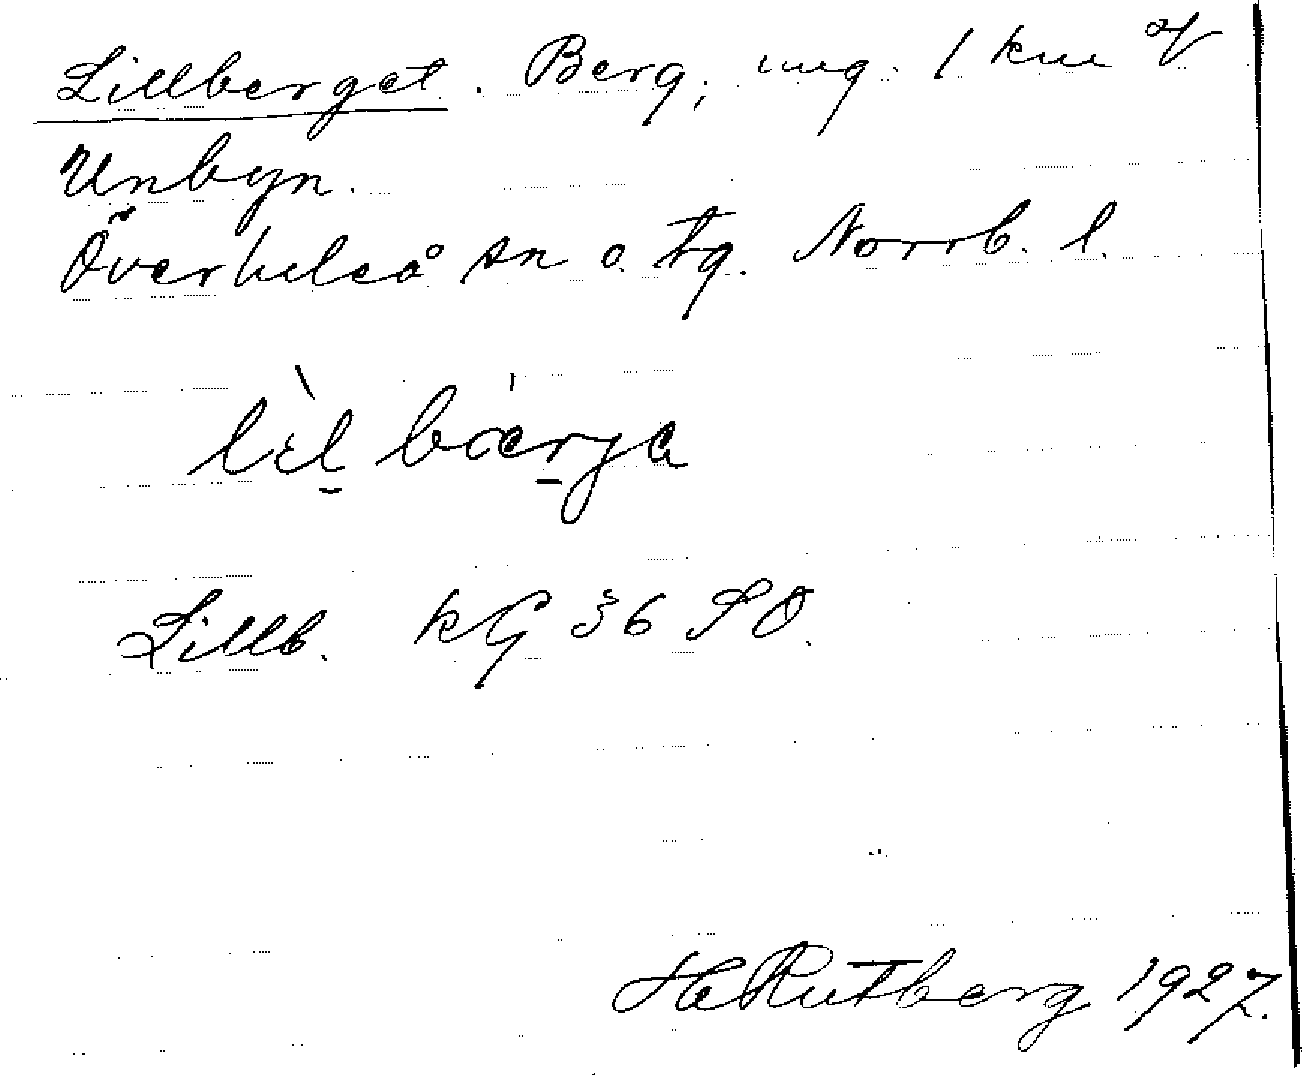 Lillberget. Berg, ung. 1 km V
Unbyn.
Överluleå sn o. tg. Norrb. l.
lìl bærja
Lillb. kG 36 SO.
H Rutberg 1927.